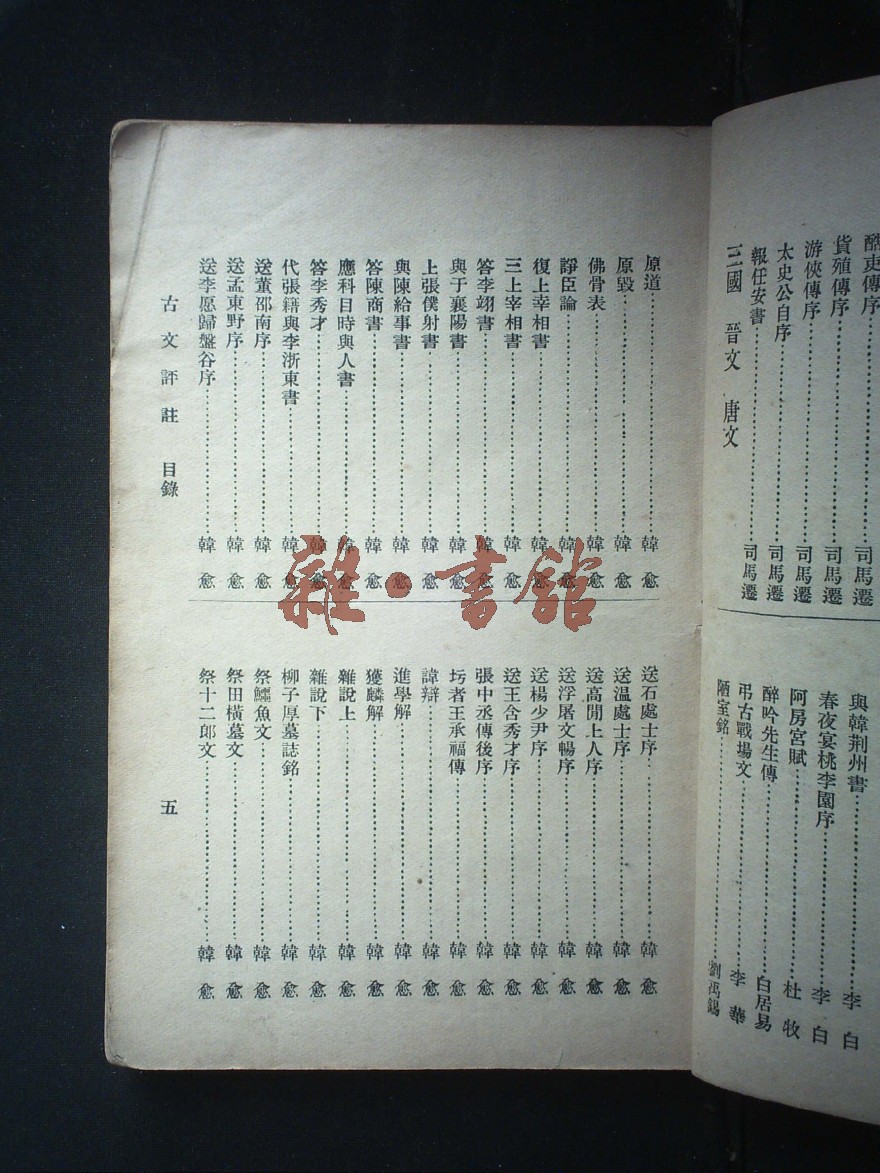 酷吏傳序……司馬遷
貨殖傳序……司馬遷
游俠傳序……司馬遷
太史公自序……司馬遷
報任安書……司馬遷
三國 晉文 唐文
與韓荆州書……李白
春夜宴桃李園序……李白
阿房宮賦……杜牧
醉吟先生傳……白居易
弔古戰場文……李華
陋室銘……劉禹錫
原道……韓愈
原毀……韓愈
佛骨表……韓愈
諍臣論……韓愈
復上宰相書……韓愈
三上宰相書……韓愈
答李翊書……韓愈
與于襄陽書……韓愈
上張僕射書……韓愈
與陳給事書……韓愈
答陳商書……韓愈
應科目時與人書……韓愈
答李秀才……韓愈
代張籍與李浙東書……韓愈
送董邵南序……韓愈
送孟東野序……韓愈
送李愿歸盤谷序……韓愈
送石處士序……韓愈
送温處士序……韓愈
送高閒上人序……韓愈
送浮屠文暢序……韓愈
送楊少尹序……韓愈
送王含秀才序……韓愈
張中丞傳後序……韓愈
圬者王承福傳……韓愈
諱辯……韓愈
進學解……韓愈
獲麟解……韓愈
雜說上……韓愈
雜說下……韓愈
柳子厚墓誌銘……韓愈
祭鱷魚文……韓愈
祭田橫墓文……韓愈
祭十二郎文……韓愈
古文評註 目錄 五
雜·書館